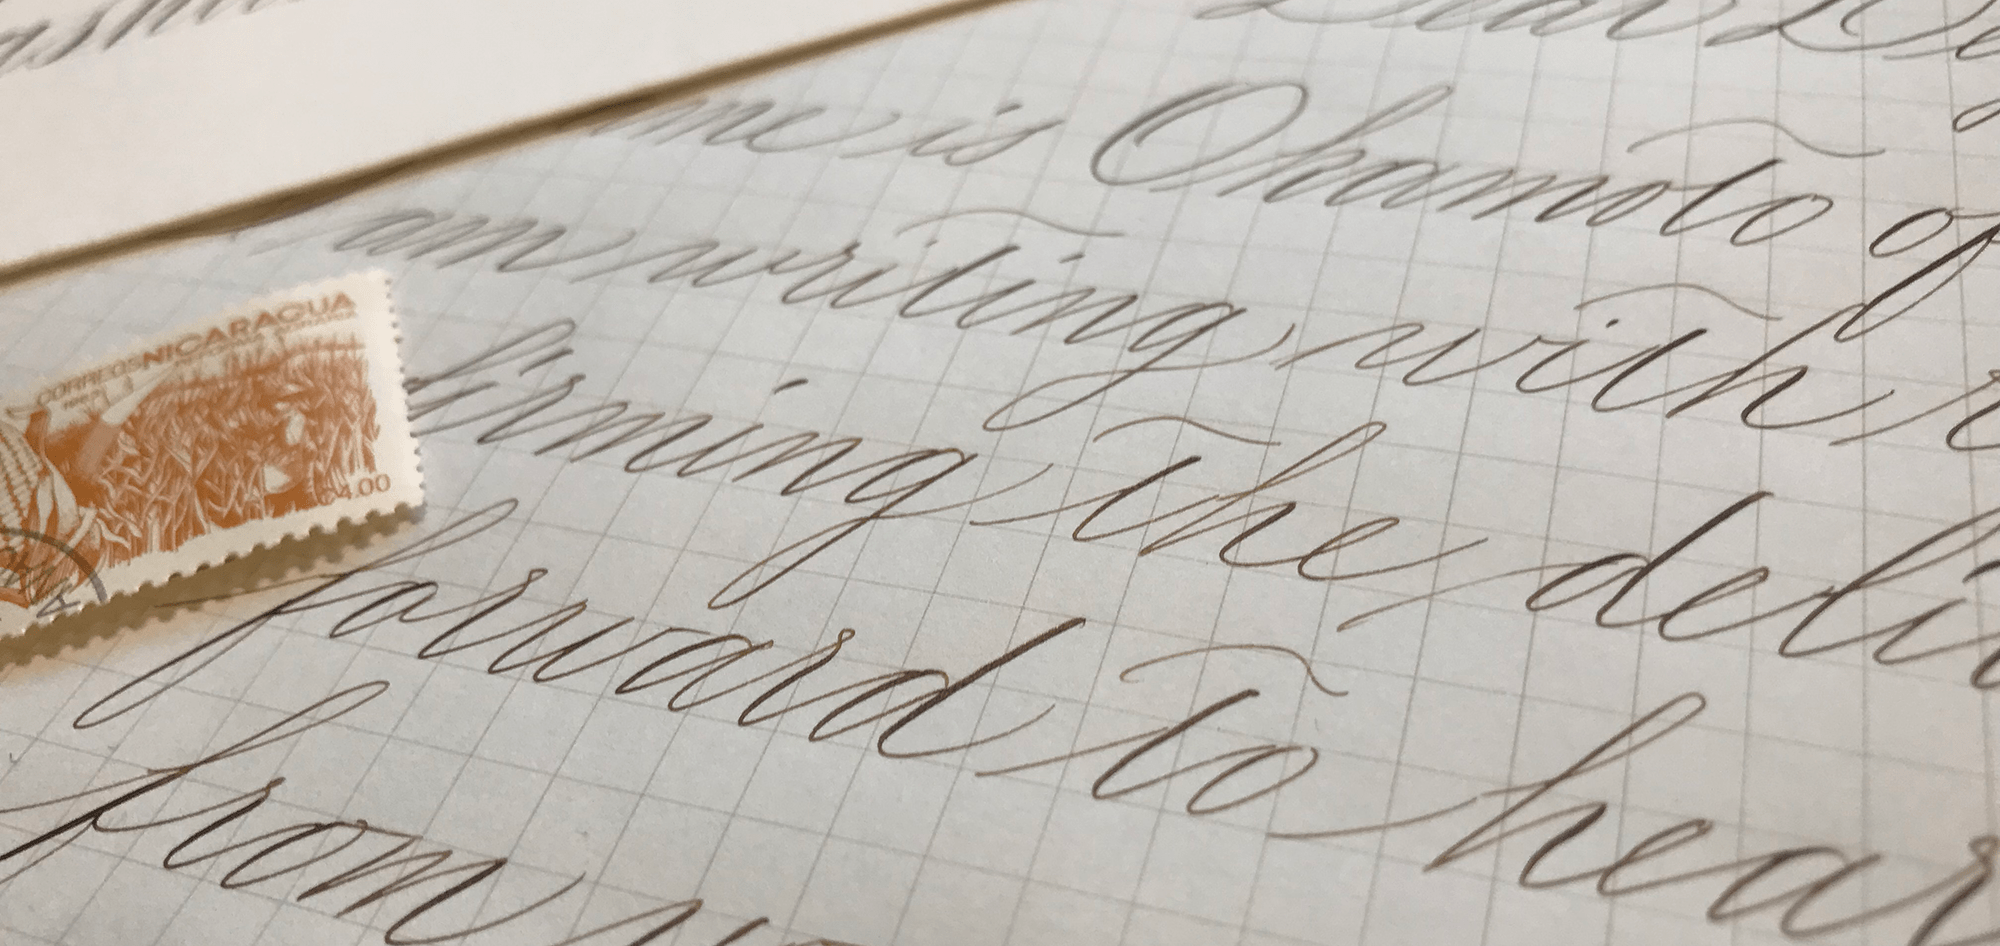 is Okamoto of
am writing with
firming the deli
forward to hear
from
CORREOS NICARAGUA
C$4.00